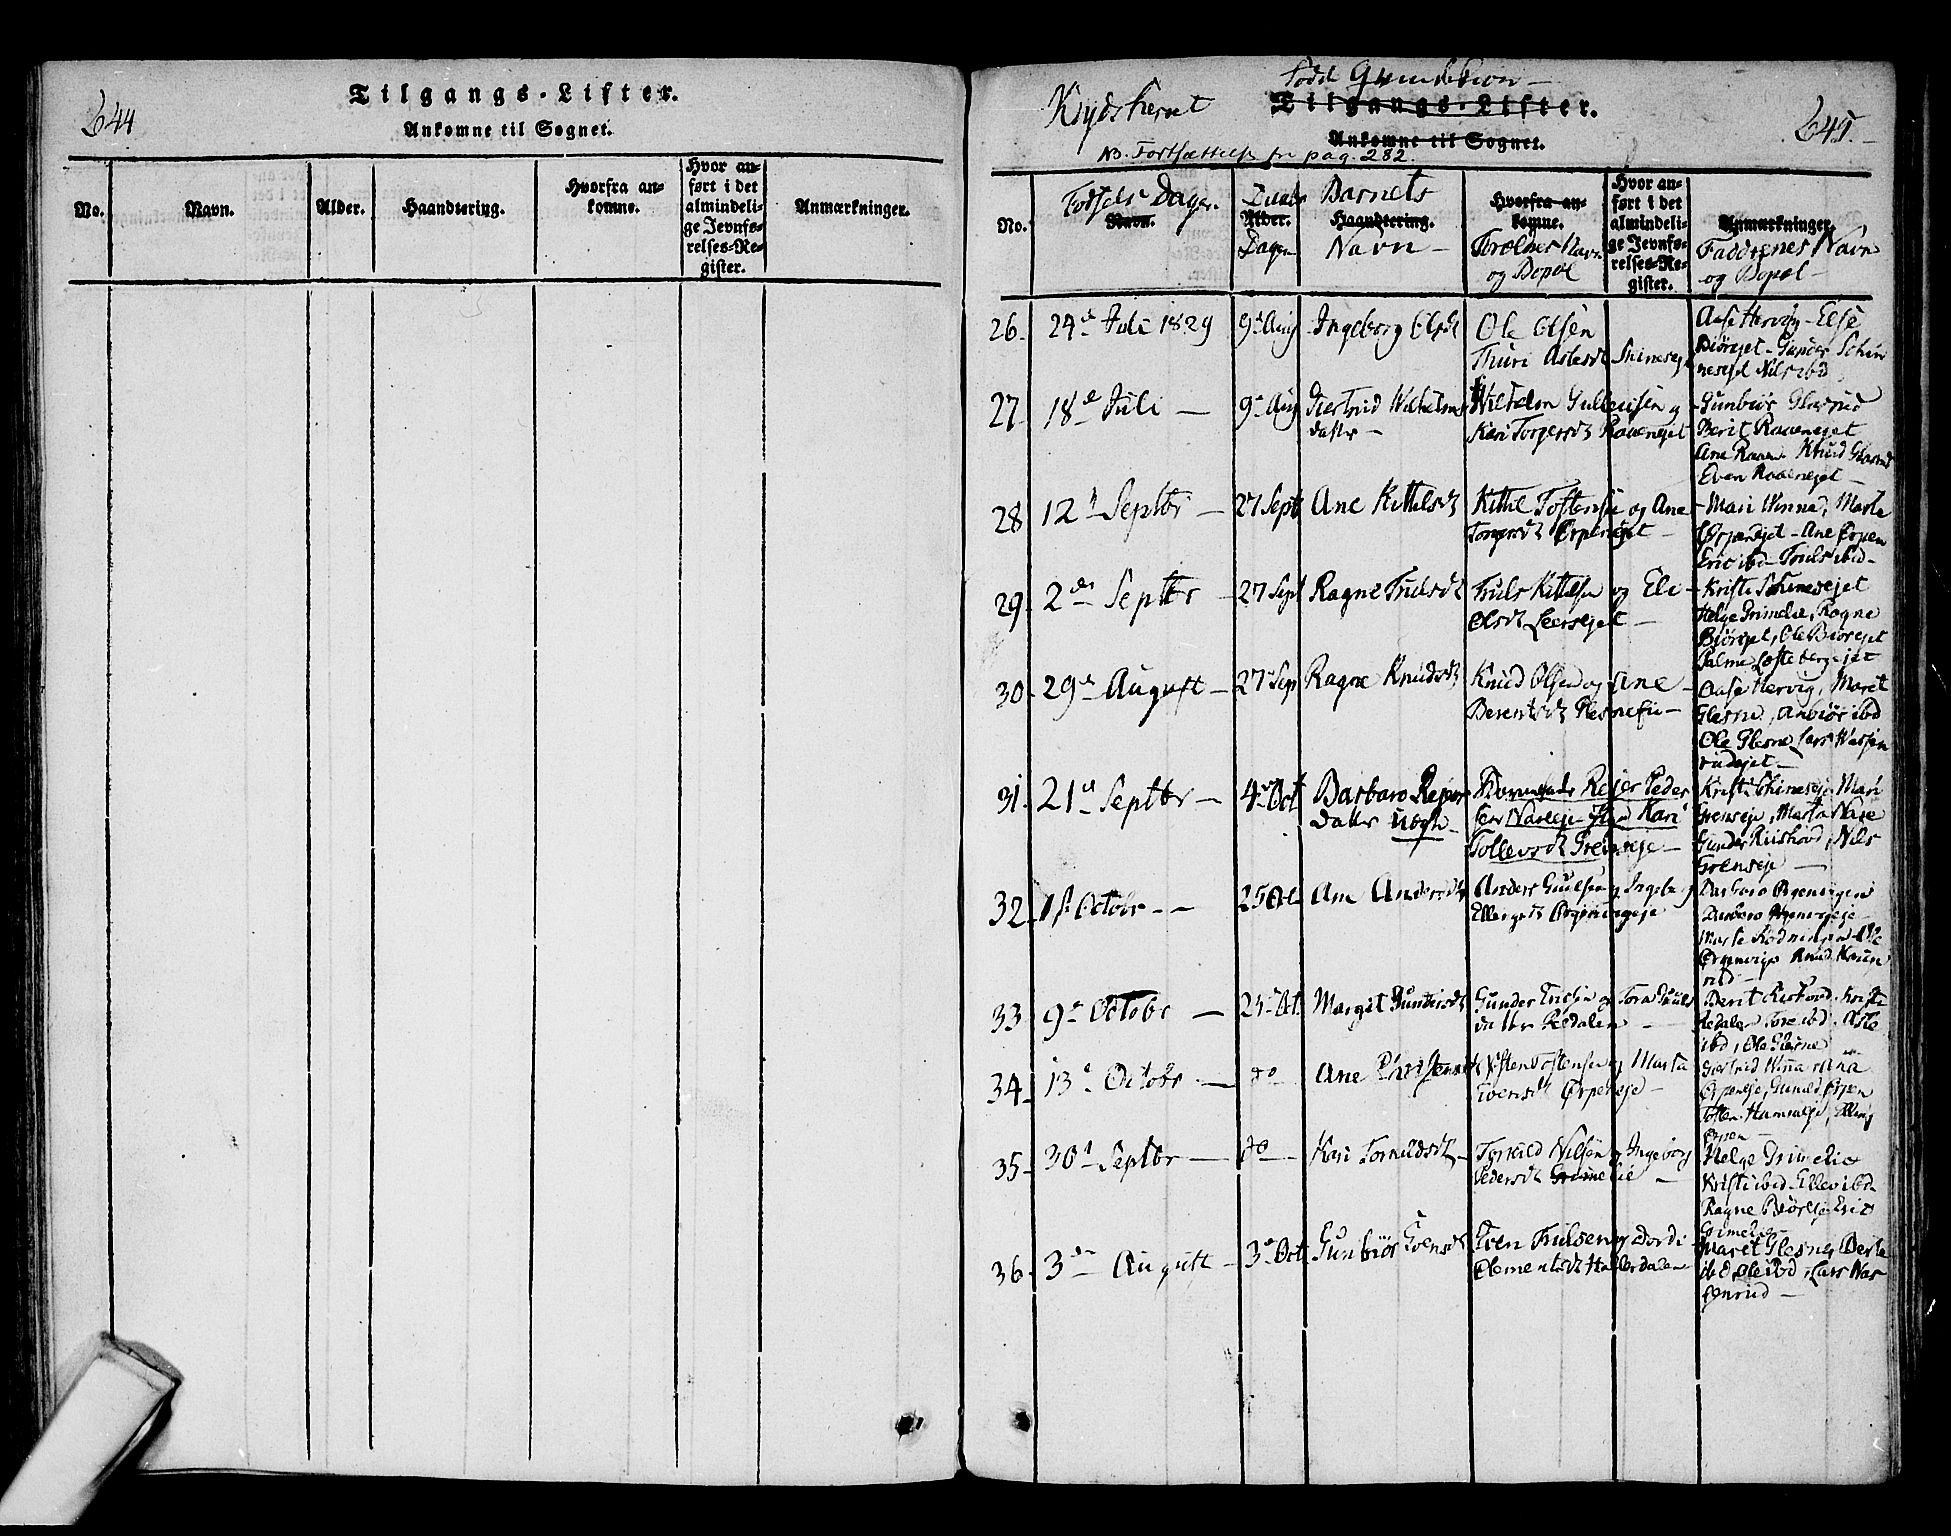 644
Tilgangs-Lister.
Ankomne til Sognet.
No.
Navn.
Alder.
Haandtering.
Hvorfra an-
komne.
Hvor an-
ført i det
almindeli-
ge Jevnfø-
relses-Re-
gister.
Anmærkninger.
Fødd Qvindekion
Krydsherret
Tilgangs-Lister.
Ankomne til Sognet.
645.
NB. Fortsættelse fra pag. 282.
No.
Fødsels Dager.
Navn.
Daabs
Alder.
Dagen
Barnets
Haandtering.
Navn
Hvorfra an-
komne.
Forældres Navn
og Bopæl
Hvor an-
ført i det
almindeli-
ge Jevnfø-
relses-Re-
gister.
Anmærkninger.
Faddrenes Navn
og Bopæl
26. 24de Juli 1829 9de Aug Ingeborg Olsdt Ole Olsen
Thuri Aslesdt Skinesejet
Aase Hervig - Else
Biørejet - Gunder Skin
nesejet Nils ibd
27. 18de Juli 9de Aug Giertrud Wilhelms
datter
Wilhelm Gulleiksen og
Kari Torgersdt Raaenejet
Gunbiør Glesne
Berit Raaenejet
Ane Raaen Knud Glesne
Even Raaenejet
28 12te Septbr 27 Sept Ane Kittelsdt Kittil Tostensen og Ane
Torgersdt Ørpenejet
Mari Winne, Marte
Ørpenejet - Ane Ørpen
Eric ibd - Truls ibd
29. 2den Septbr 27 Sept Ragne Trulsdt Truls Kittelsen og Eli
Olsdt Leersejet
Kristi Skinesejet
Helge Grimelie, Ragne
Biørejet, Ole Biørejet
Palme Loftebergejet
30. 29de August 27 Sept Ragne Knudsdt Knud Olsen og Ane
Berentsdt Glesneeie
Aase Hervig, Maret
Glesne, Anbiør ibd
Ole Glesne Lars Wasjen
rudejet
31. 21de Septbr 4de Oct Barbaro Rejer
Datter Uægte
Rejer Peder
sen Nareeje og Kari
Tollevsdt Grenseje
Kristi Skineseje, Mari
Grenseje, Marta Nare
Gunder Ruishovd, Nils
Grenseje
32. 1ste Octobr 25 Oct Ane Andersdt Anders Gulsen og Ingeborg
Ellingsdt Ørgeningeje
Barbaro Ørgeningen
Barbaro
Marte
Knud
rud
33. 9de Octobr 25 Oct Margit Gundersdt Gunder Ericsen og Tora Pauls
datter Redalen
Berit Ruishovd, Kristi
Redalen Tore ibd, Asle
ibd, Ole Glesne
34. 13de Octobr do Ane Christensdt Christen Tostensen og Marta
Evensdt Ørpeneje
Giertrud Winna
Ørpeneje, Gunild Ørpen
Tosten Hamreeje, Elling
Ørpen
35. 30te Septbr do Kari Torkildsdt Torkild Nilsen og Ingeborg
Pedersdt Grimelie
Helge Grimelie
Kristi ibd - Ellev ibd
Ragne Biøreeje Eric
Grimelie
36. 3die August 3de Oct Gunbiør Evensdt Even Trulsen og Dordi
Clementsdt Hallerdalen
Maret Glesne, Berte
ibd Ole ibd, Lars Was
jenrud